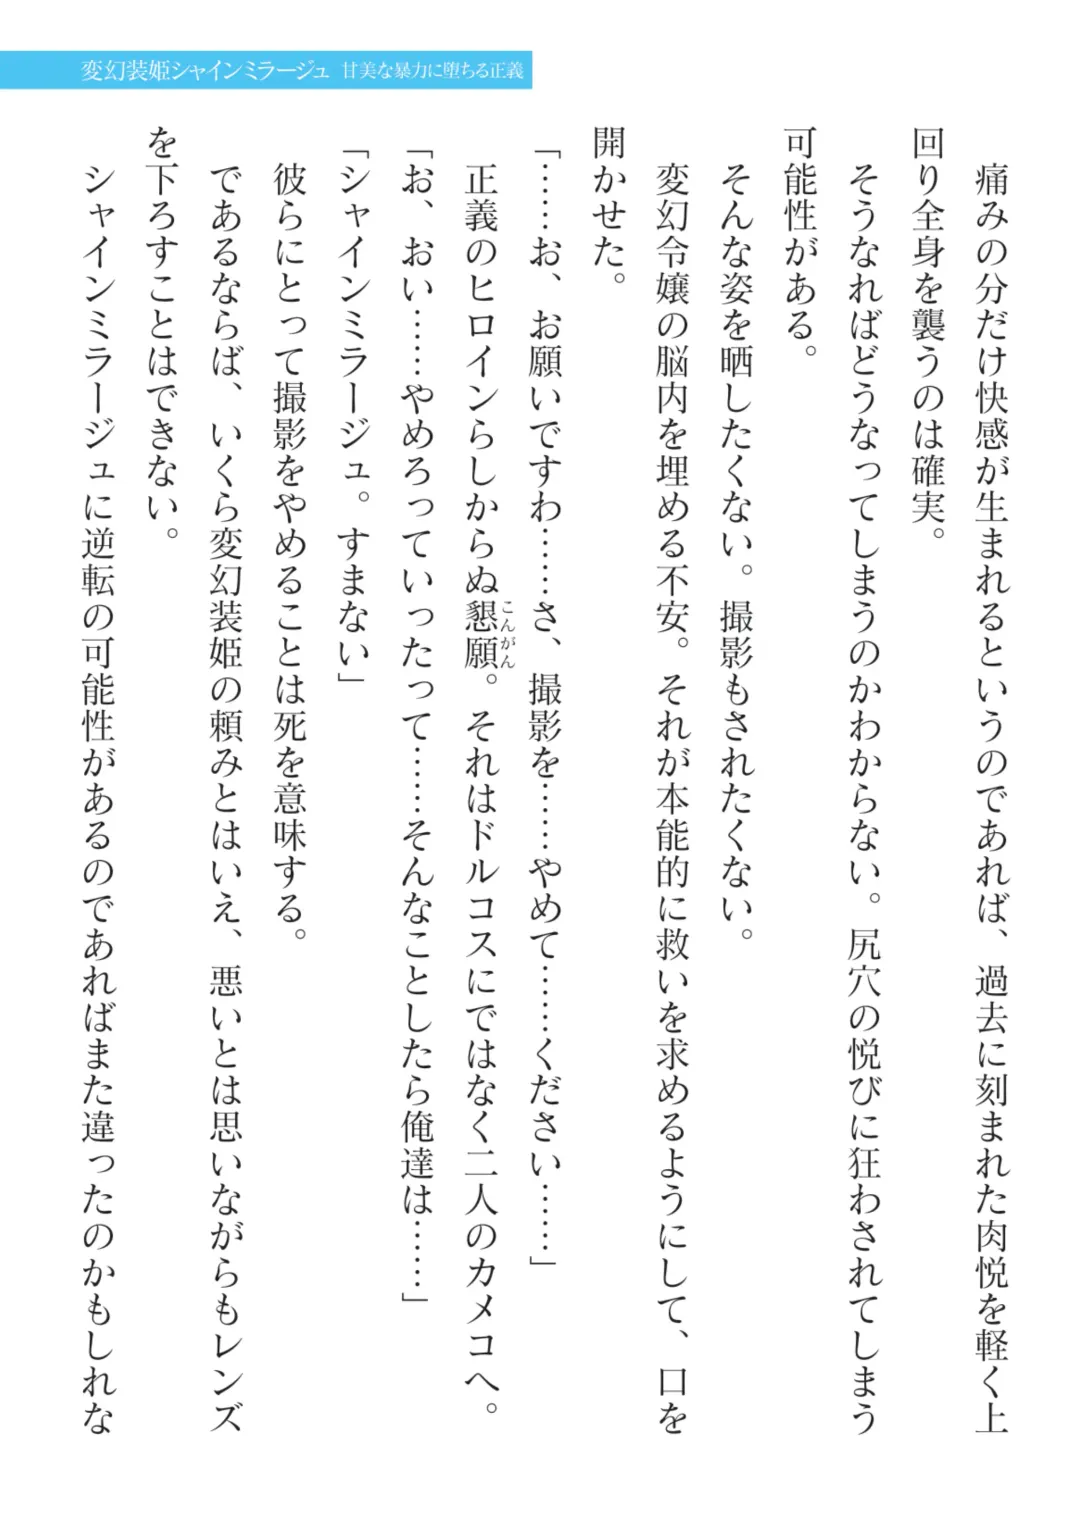 変幻装姫シャインミラージュ 甘美な暴力に堕ちる正義
痛みの分だけ快感が生まれるというのであれば、過去に刻まれた肉悦を軽く上
回り全身を襲うのは確実。
そうなればどうなってしまうのかわからない。尻穴の悦びに狂わされてしまう
可能性がある。
そんな姿を晒したくない。撮影もされたくない。
変幻令嬢の脳内を埋める不安。それが本能的に救いを求めるようにして、口を
開かせた。
「……お、お願いですわ……さ、撮影を……やめて……ください……」
正義のヒロインらしからぬ懇願。それはドルコスにではなく二人のカメコへ。
こんがん
「お、おい……やめろっていったって……そんなことしたら俺達は……」
「シャインミラージュ。すまない」
彼らにとって撮影をやめることは死を意味する。
であるならば、いくら変幻装姫の頼みとはいえ、悪いとは思いながらもレンズ
を下ろすことはできない。
シャインミラージュに逆転の可能性があるのであればまた違ったのかもしれな